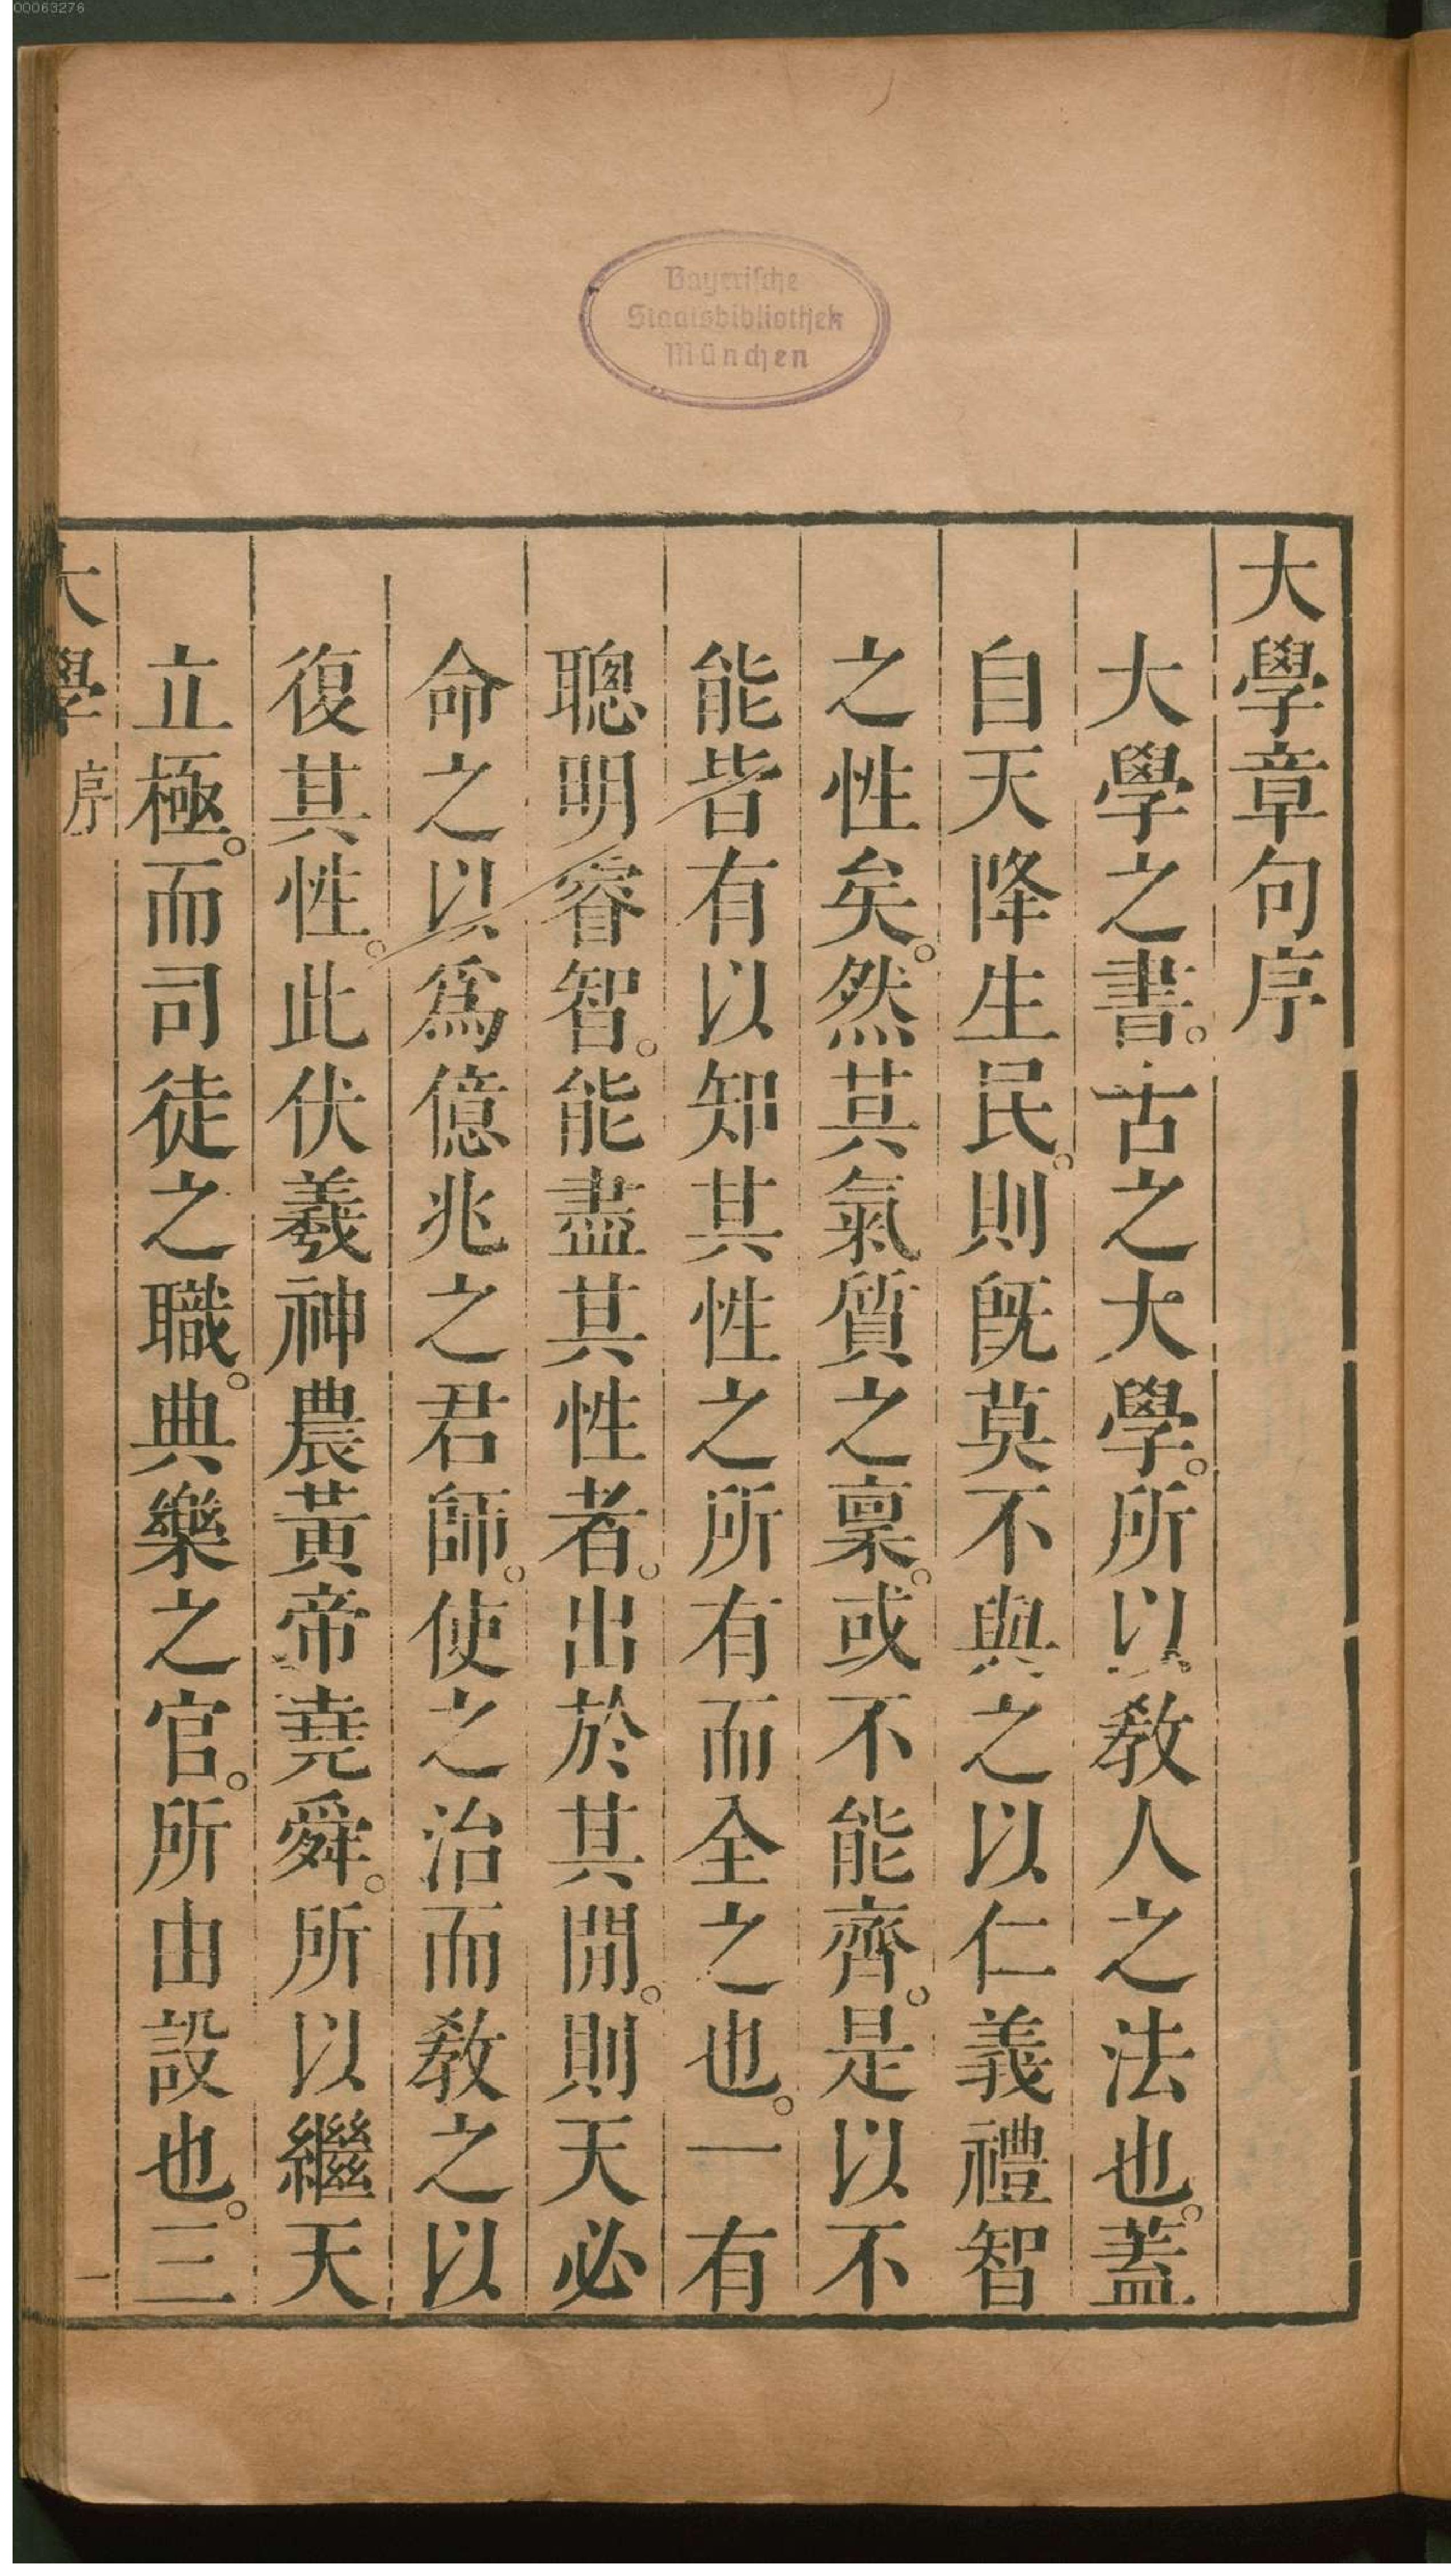 00063276
Bayerische
Staatsbibliothek
München
大學章句序
大學之書。古之大學。所以敎人之法也。蓋
自天降生民。則旣莫不與之以仁義禮智
之性矣。然其氣質之稟。或不能齊。是以不
能皆有以知其性之所有而全之也。一有
聰明睿智。能盡其性者。出於其閒。則天必
命之以爲億兆之君師。使之治而敎之以
復其性。此伏羲神農黃帝堯舜。所以繼天
立極。而司徒之職。典樂之官。所由設也。三
大學 序 一